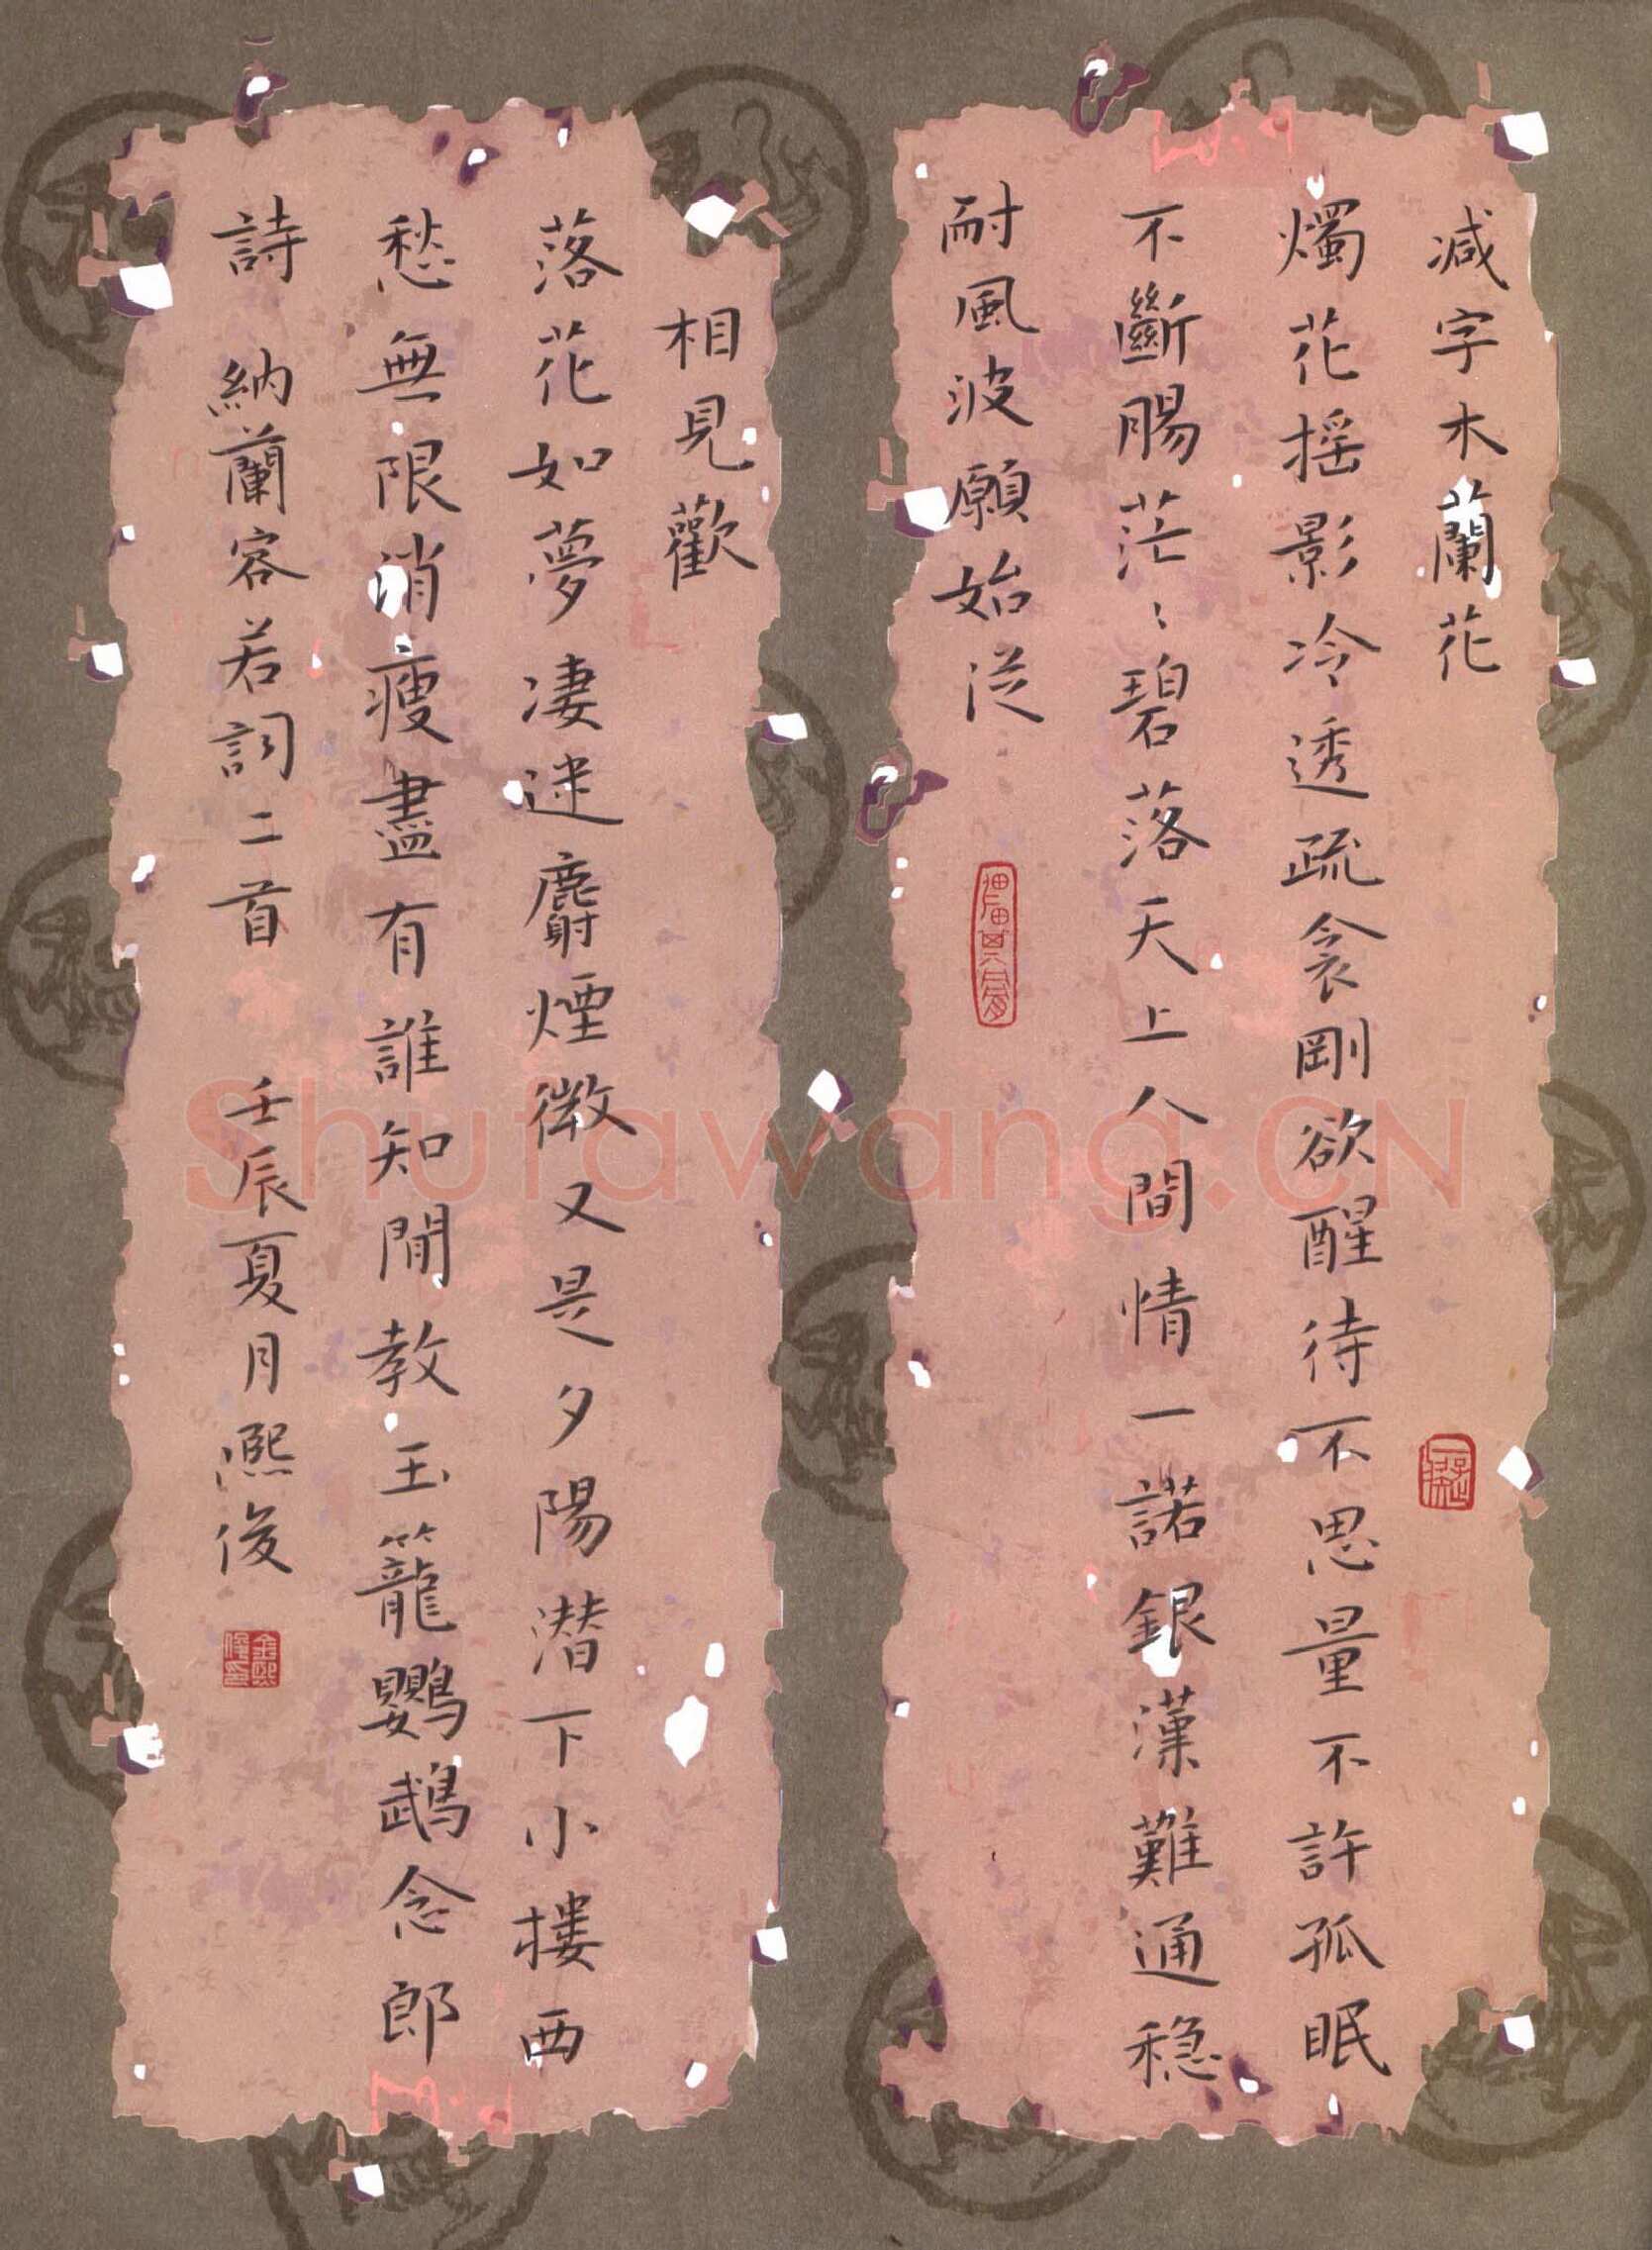 减字木蘭花
燭花摇影冷透疏衾剛欲醒待不思量不許孤眠
不斷腸茫〻碧落天上人間情一諾銀漢難通穏
耐風波願始従
相見歡
落花如夢凄迷麝煙微又是夕陽潜下小樓西
愁無限消瘦盡有誰知閒教玉籠鸚鵡念郎
詩 納蘭容若詞二首 壬辰夏月熙俊
Shufawang.CN